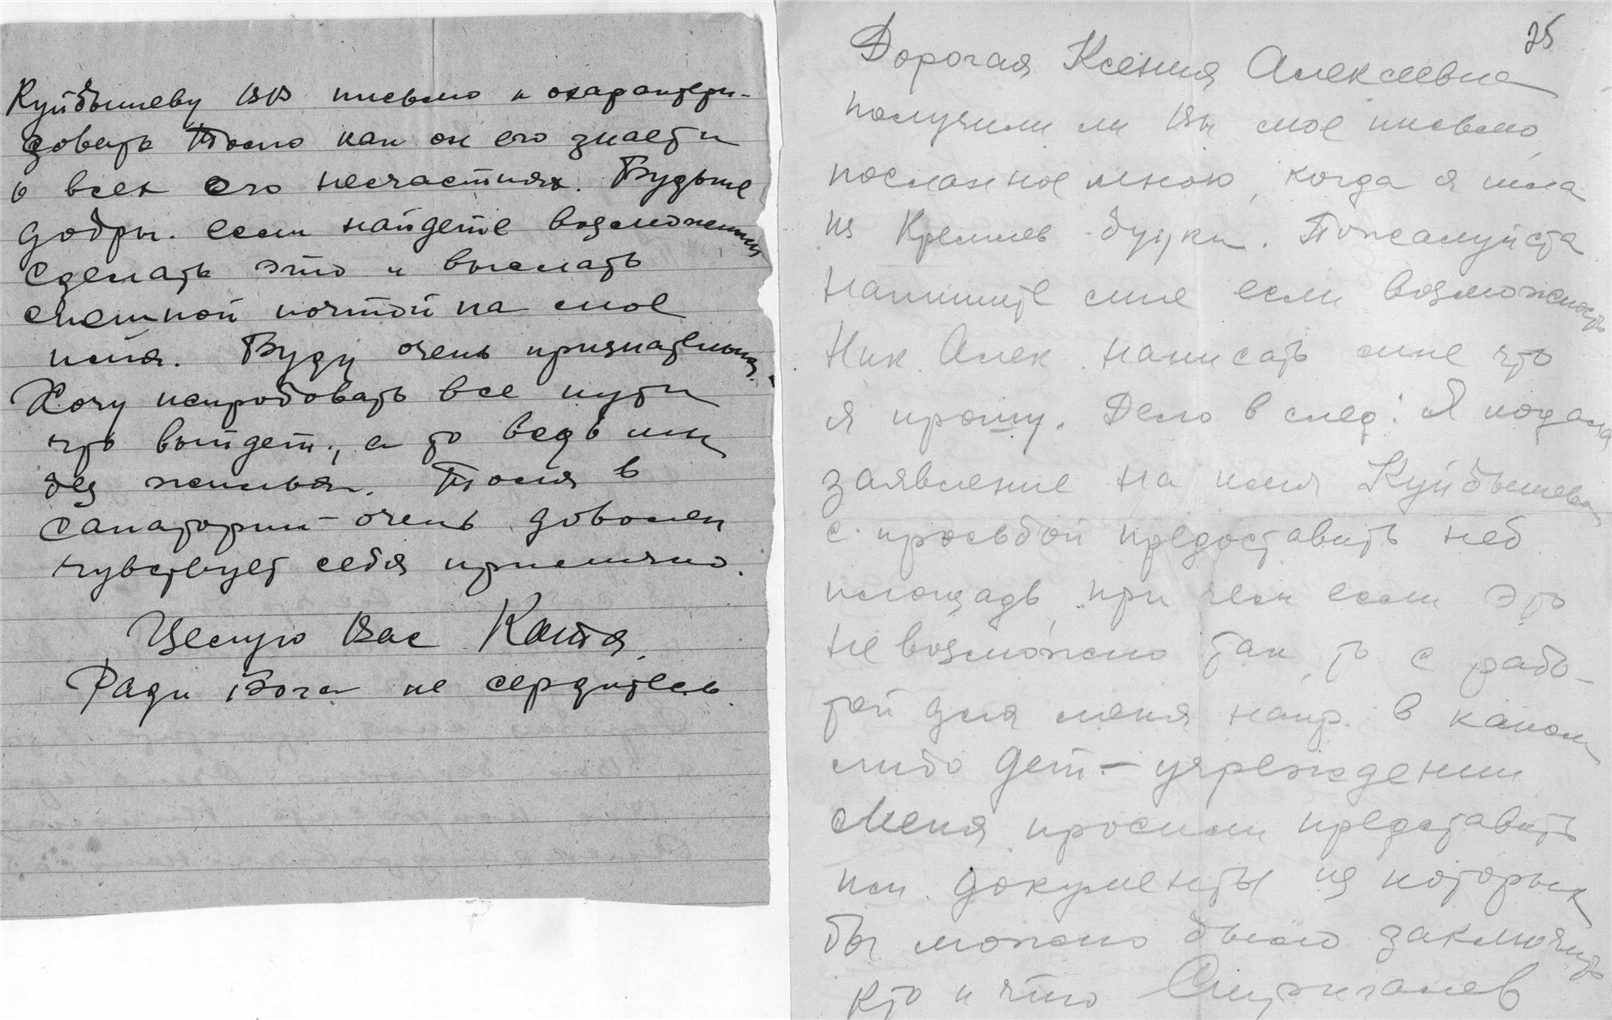 Куйбышеву ВВ письмо и охарактери-
зовать Толю как он его знает и
о всех его несчастиях. Будьте
добры. если найдете возможным
сделать это и выслать
спешной почтой на мое
имя. Буду очень признательна.
Хочу испробовать все пути
что выйдет, а то ведь мы
без жилья. Толя в
санатории - очень доволен
чувствует себя прилично.
Целую Вас Катя.
Ради Бога не сердитесь.
25
Дорогая Ксения Алексеевна
получили ли Вы мое письмо
посланное мною, когда я шла
из Кремлев. будки. Пожалуйста
напишите мне если возможность
Ник. Алек. написать мне что
я прошу. Дело в след: Я подала
заявление на имя Куйбышева
с просьбой предоставить неб.
площадь, при чем если это
не возможно так, то с рабо-
той для меня напр. в каком
либо дет-учреждении
Меня просили представить
им документы из которых
бы можно было заключить
кто и что